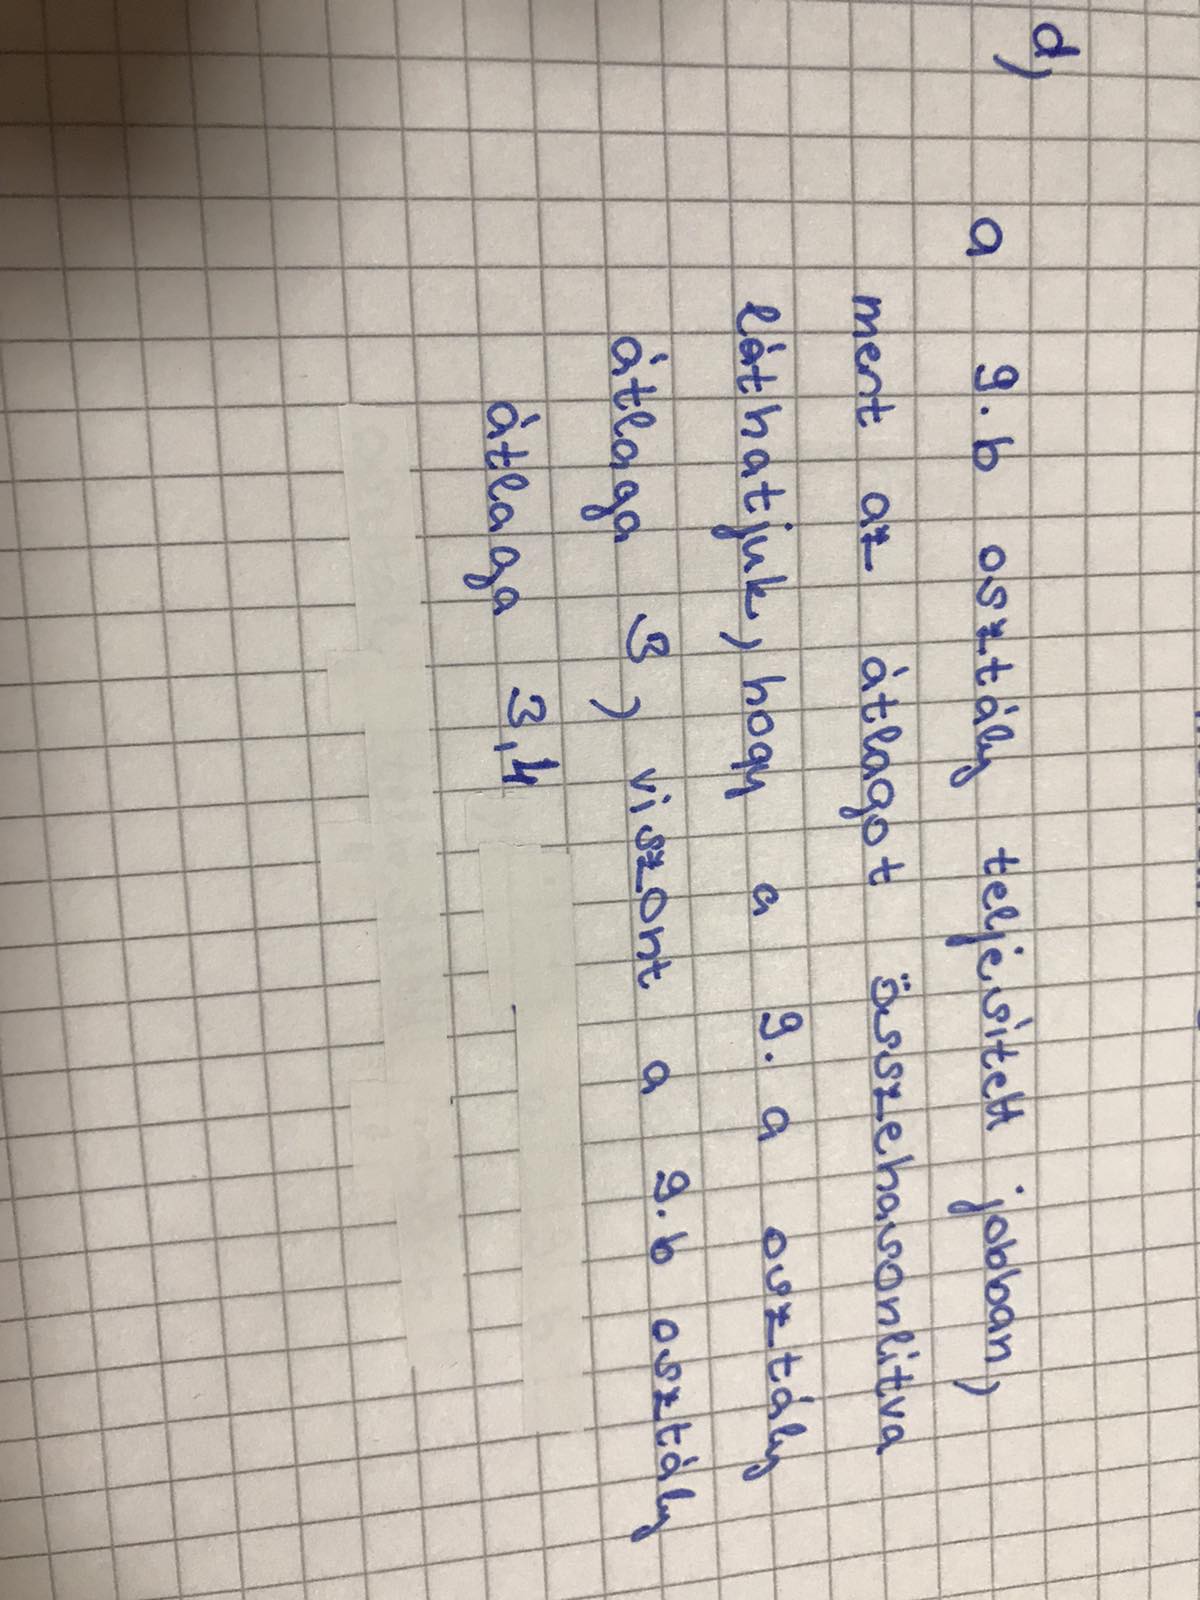 d)
a 9.b osztály teljesített jobban,
mert az átlagot összehasonlitva
láthatjuk, hogy a 9. a osztály
átlaga 3, viszont a 9.b osztály
átlaga 3,4